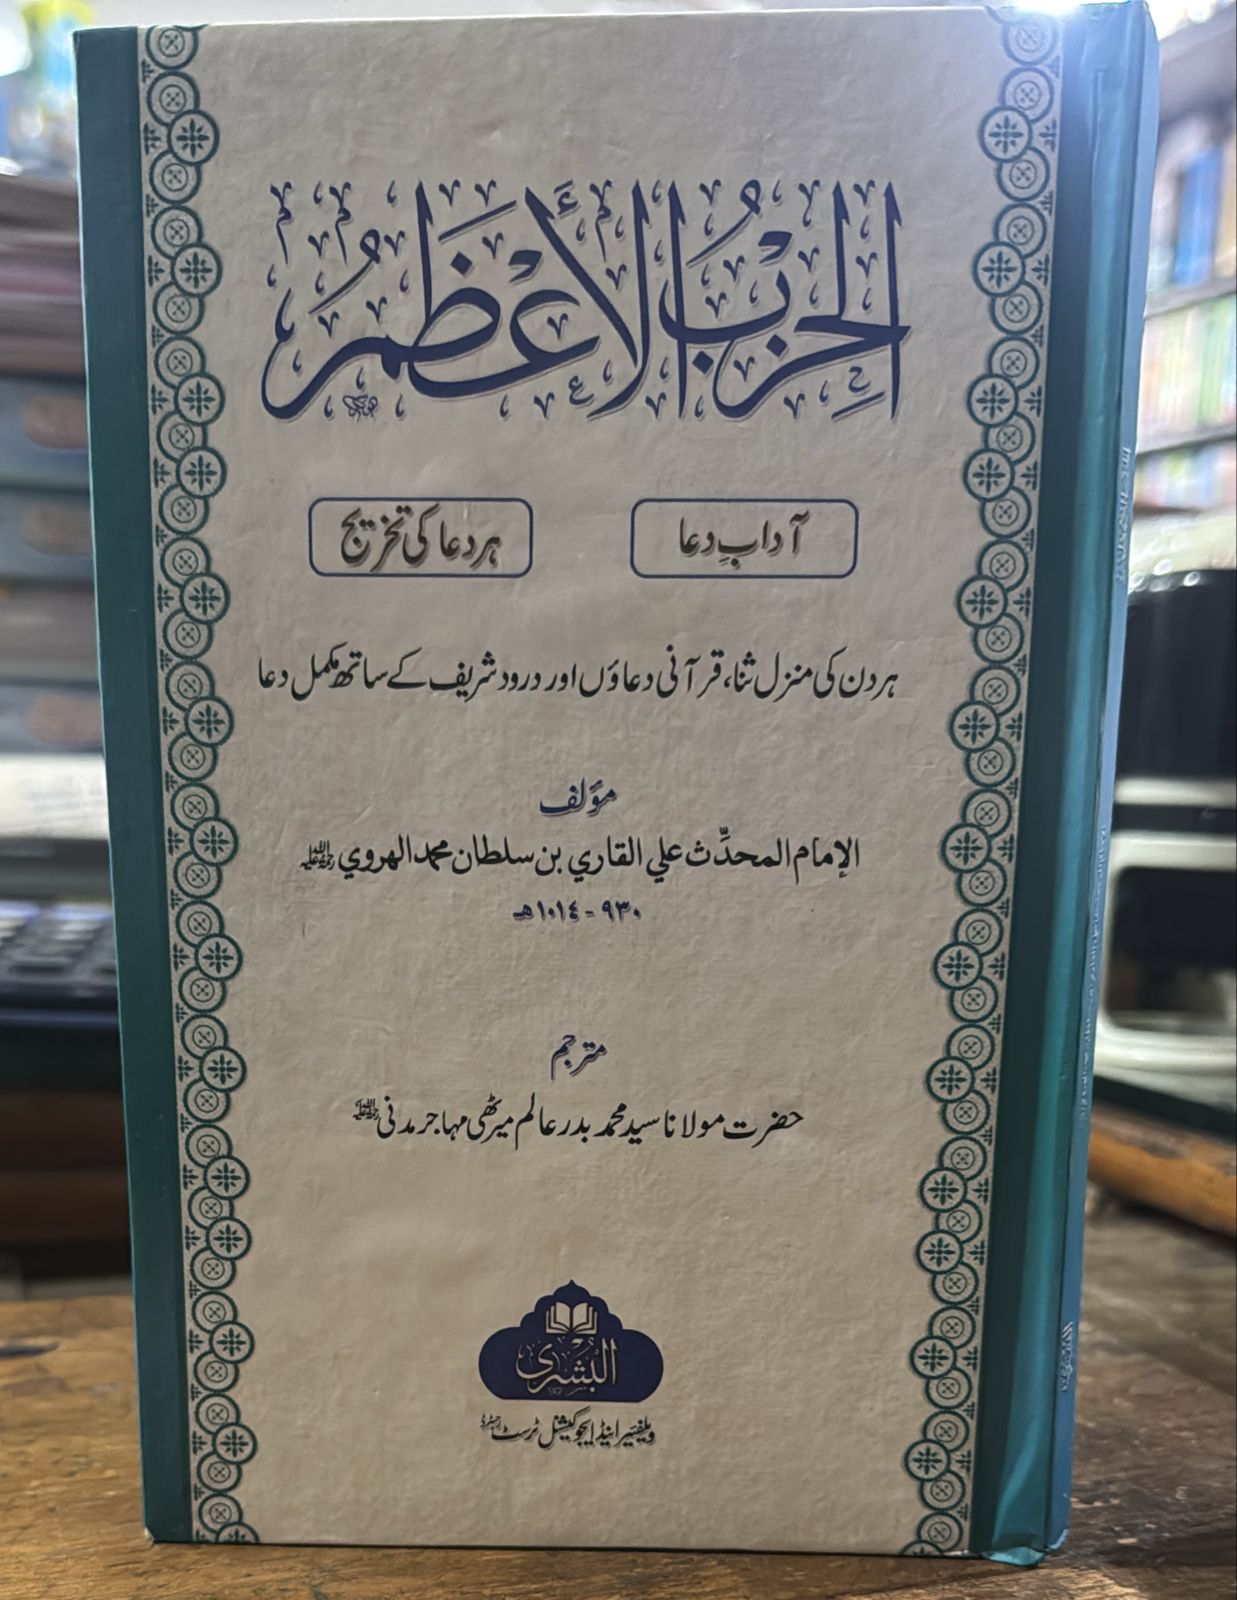 الحِزْبُ الأَعْظَمُ
آدابِ دعا
ہر دعا کی تخریج
ہر دن کی منزل ثنا، قرآنی دعاؤں اور درود شریف کے ساتھ مکمل دعا
مؤلف
الإمام المحدِّث علي القاري بن سلطان محمد الهروي رحمۃ اللہ علیہ
٩٣٠ - ١٠١٤ھ
مترجم
حضرت مولانا سید محمد بدر عالم میرٹھی مہاجر مدنی رحمۃ اللہ علیہ
البُشرى
ویلفیئر اینڈ ایجوکیشنل ٹرسٹ رجسٹرڈ